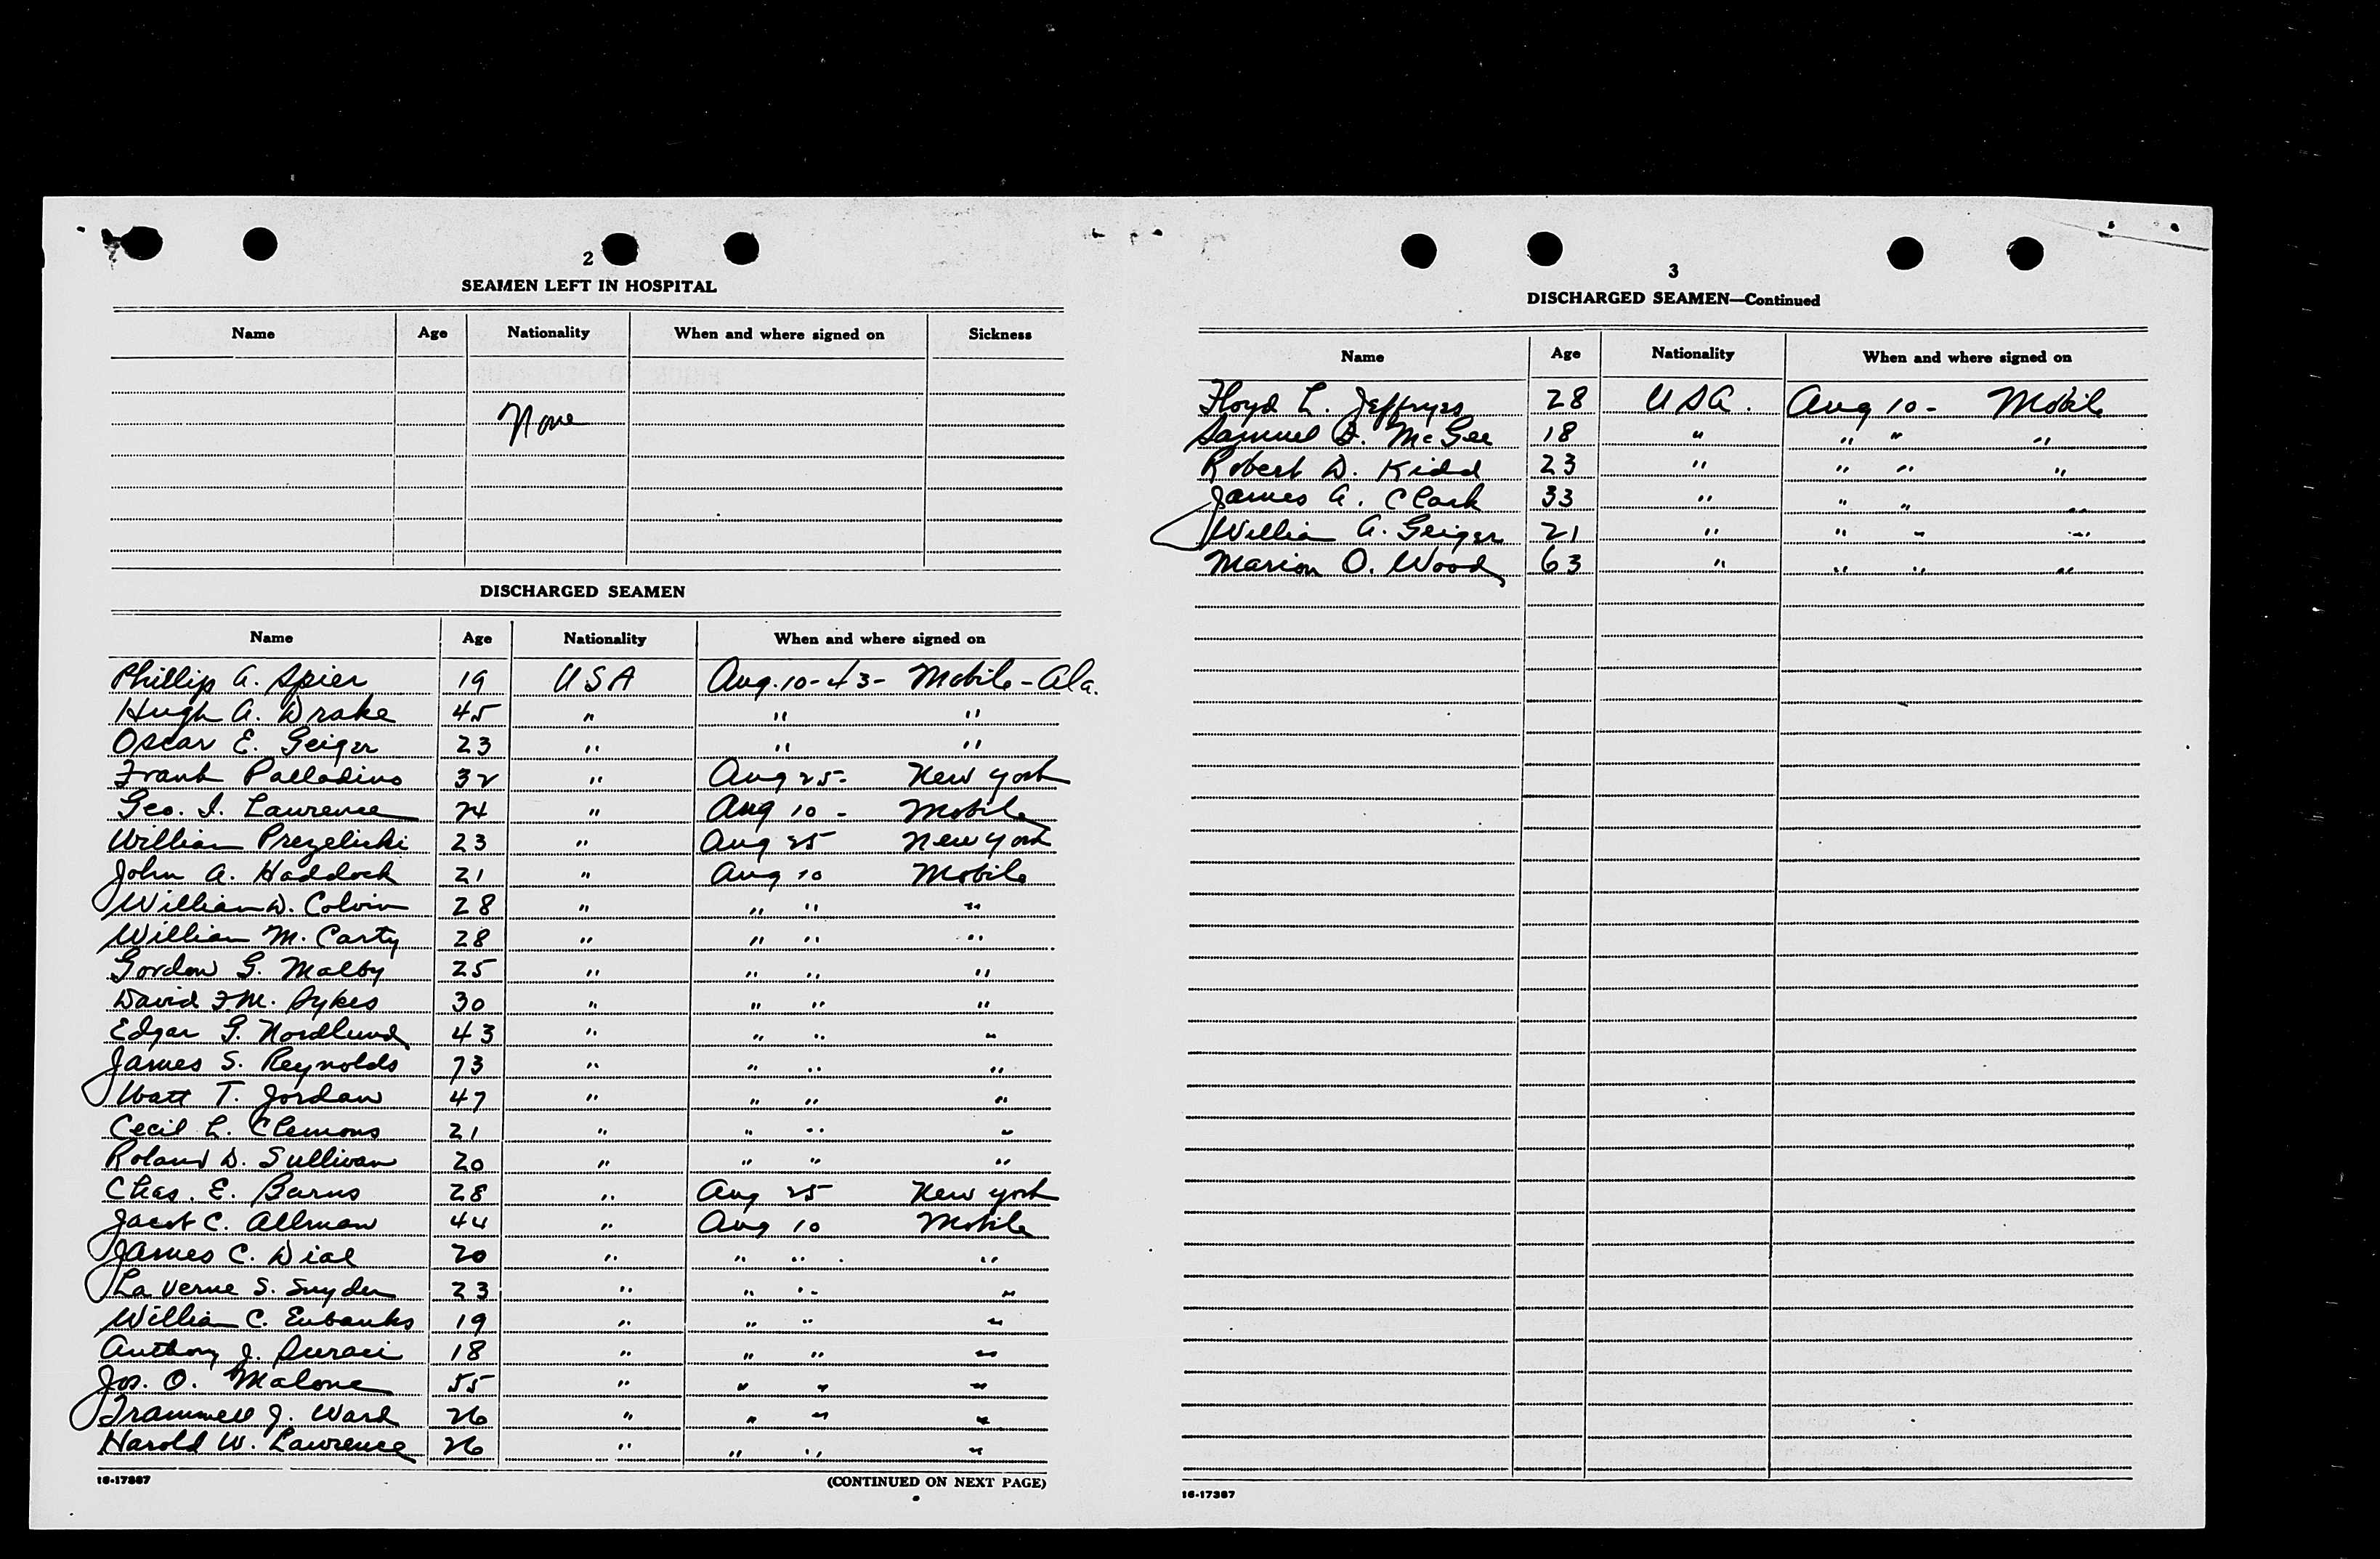 2
SEAMEN LEFT IN HOSPITAL
Name Age Nationality When and where signed on Sickness
None
DISCHARGED SEAMEN
Name Age Nationality When and where signed on
Phillip A. Spier 19 USA Aug. 10-43- Mobile-Ala.
Hugh A. Drake 45 " " "
Oscar E. Geiger 23 " " "
Frank Palladino 32 " Aug 25- New York
Geo. I. Lawrence 24 " Aug 10- Mobile
William Prezelicki 23 " Aug 25 New York
John A. Haddock 21 " Aug 10 Mobile
William D. Colvin 28 " " " "
William M. Carty 28 " " " "
Gordon G. Malby 25 " " " "
David F.M. Sykes 30 " " " "
Edgar G. Nordlund 43 " " " "
James S. Reynolds 73 " " " "
Watt T. Jordan 47 " " " "
Cecil L. Clemons 21 " " " "
Roland D. Sullivan 20 " " " "
Chas. E. Barns 28 " Aug 25 New York
Jacob C. Allman 44 " Aug 10 Mobile
James C. Dial 20 " " " "
La Verne S. Snyder 23 " " " "
William C. Eubanks 19 " " " "
Anthony J. 18 " " " "
Jos. O. Malone 55 " " " "
Trammell J. Ward 26 " " " "
Harold W. Lawrence 26 " " " "
16-17387 (CONTINUED ON NEXT PAGE)
3
DISCHARGED SEAMEN—Continued
Name Age Nationality When and where signed on
Floyd L. Jeffryes 28 USA. Aug 10- Mobile
Samuel McGee 18 " " " "
Robert D. Kidd 23 " " " "
James A. Clark 33 " " " "
William A. Geiger 21 " " " "
Marion O. Wood 63 " " " "
16-17387